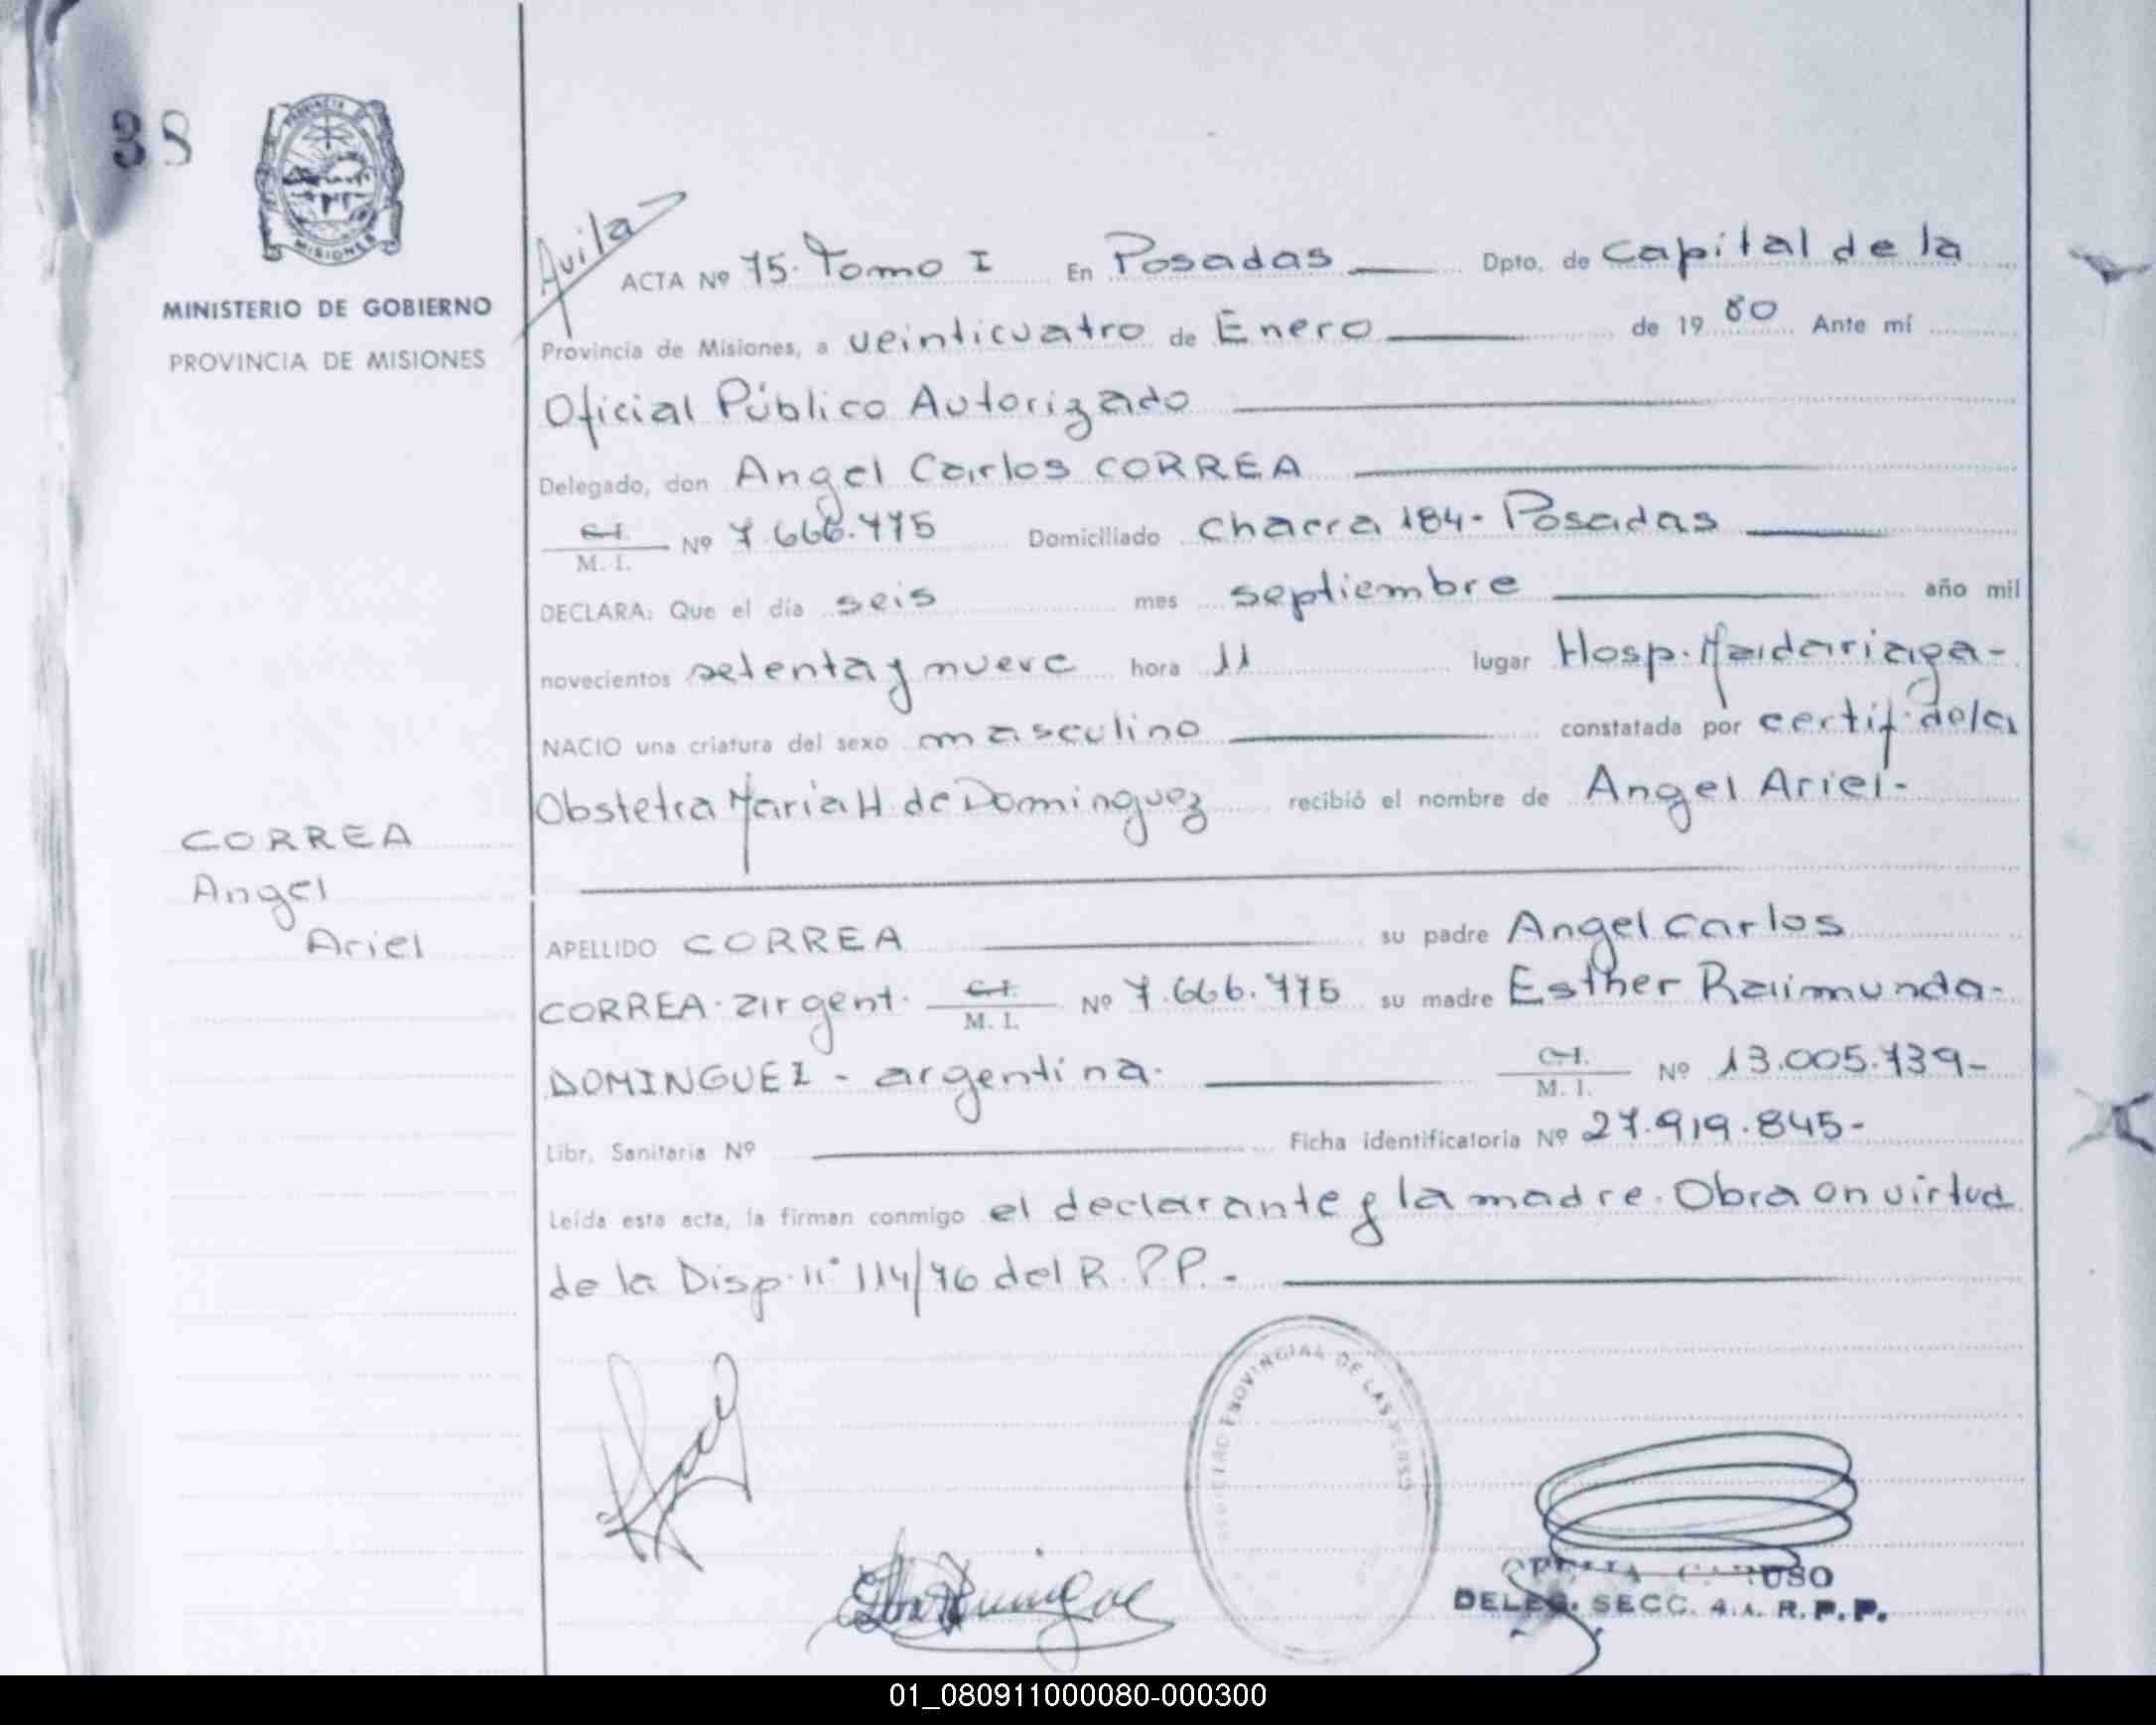 38
PROVINCIA DE
MISIONES
MINISTERIO DE GOBIERNO
PROVINCIA DE MISIONES
CORREA
Angel
Ariel
Avila
ACTA Nº 75. Tomo I En Posadas Dpto. de Capital de la
Provincia de Misiones, a veinticuatro de Enero de 19 80 Ante mí
Oficial Público Autorizado
Delegado, don Angel Carlos CORREA
C.I. M. I. Nº 7.666.775 Domiciliado Chacra 184- Posadas
DECLARA: Que el día seis mes septiembre año mil
novecientos setenta y nueve hora 11 lugar Hosp. Madariaga-
NACIO una criatura del sexo masculino constatada por certif. de la
Obstetra Maria H. de Dominguez recibió el nombre de Angel Ariel-
APELLIDO CORREA su padre Angel Carlos
CORREA. argent. C.I. M. I. Nº 7.666.775 su madre Esther Raimunda-
DOMINGUEZ - argentina. C.I. M. I. Nº 13.005.739-
Libr. Sanitaria Nº Ficha identificatoria Nº 27.919.845-
Leída esta acta, la firman conmigo el declarante y la madre. Obra en virtud
de la Disp. nº 114/76 del R.P.P.-
PROVINCIAL DE LAS
DELEG. SECC. 4.a. R.P.P.
01_080911000080-000300